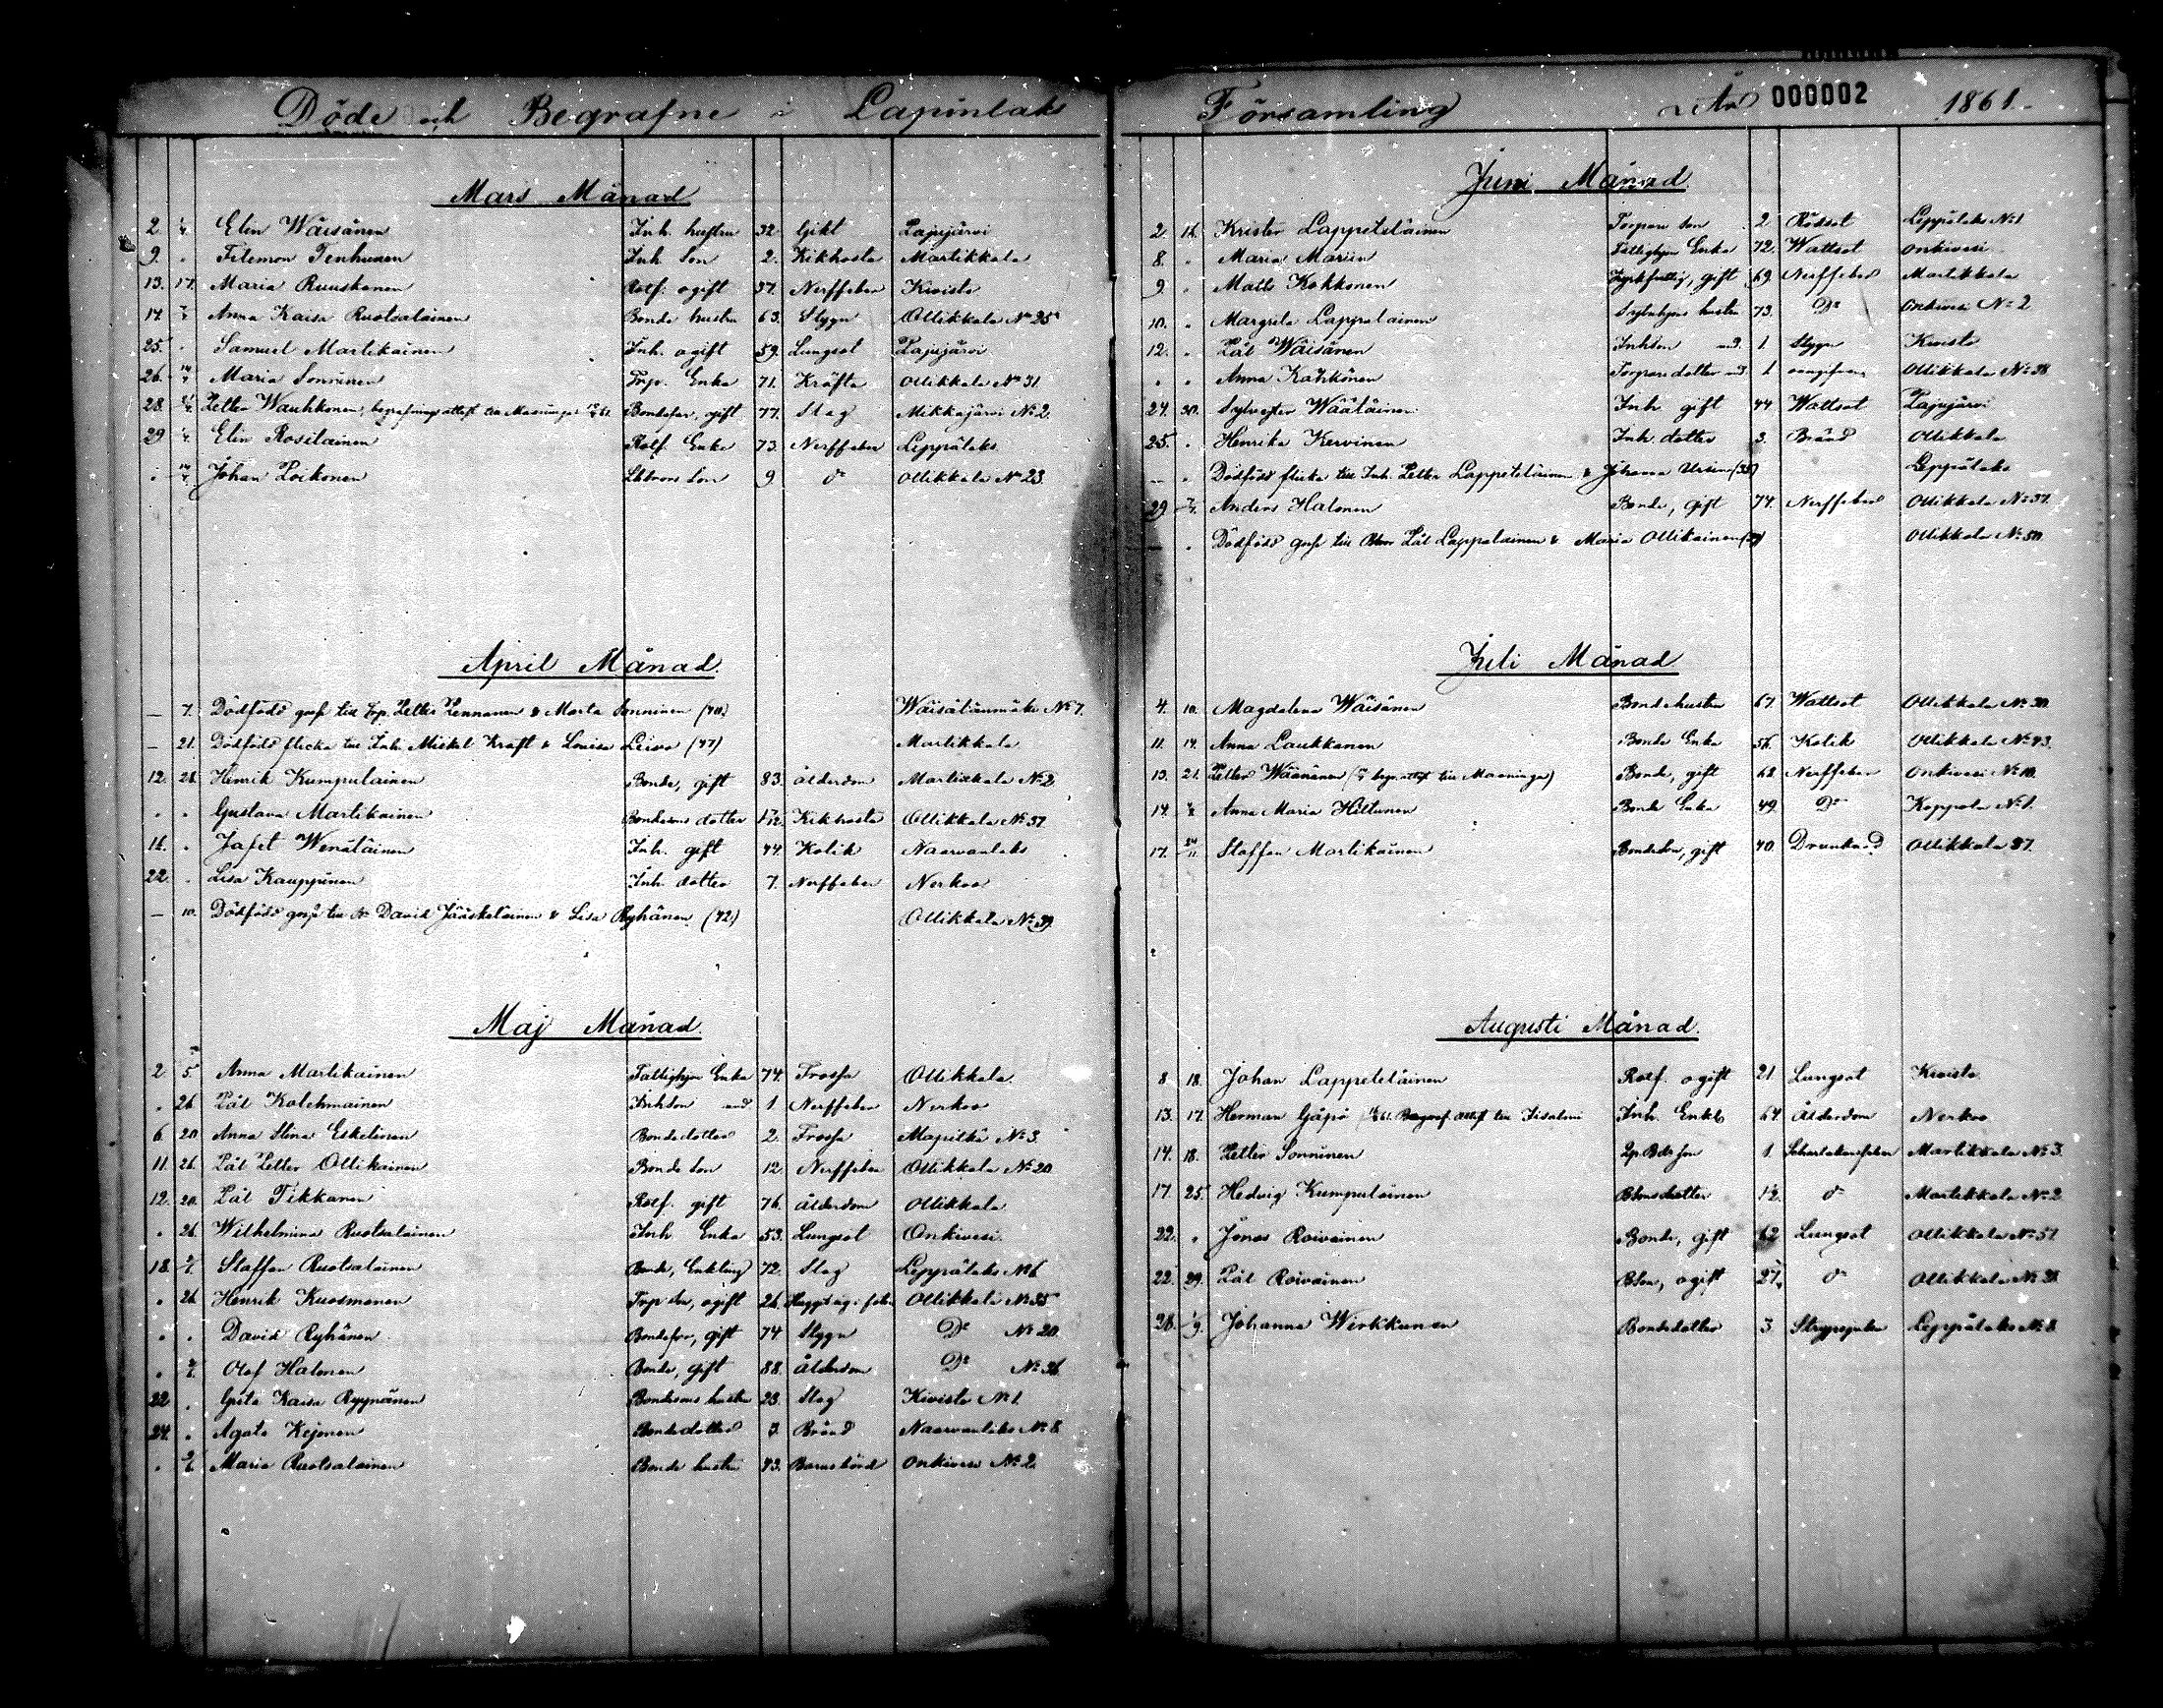 Döde och Begrafne i Lapinlaks
Mars Månad
2 Elin Wäisänen Inh. hustru 32 Gikt Pajujärvi
9. " Filemon Tenhunen Inh. Son 2. Kikhosta Martikkala
13. 17. Maria Ruuskonen Rotf. ogift 37. Nerffeber Kivisto
14 Anna Kaisa Ruotsalainen Bonde hustru 63. Stygn Ollikkala No 25
25. " Samuel Martikainen Inh. ogift 59. Lungsot Pajujärvi
26. Maria Sonninen Trp. Enka 71. Kräfta Ollikkala No 31
28. Petter Wauhkonen, begrafnings attest till Maaninga Bondefar, gift 77. Slag Mikkajärvi No 2.
29 Elin Rosilainen Rotf. Enka 73. Nerffeber Leppälaks
" Johan Poikonen Son 9 do Ollikkala No 23
April Månad.
— 7. Dödfödd gosse till Trp. Petter Pennanen & Marta Sonninen (40.) Wäisälänmäki No 7.
— 21. Dödfödd flicka till Inh. Mickel Kraft & Lovisa Leivo (47) Martikkala
12. 28. Henrik Kumpulainen Bonde, gift 83. ålderdom Martikkala No 2
" " Gustava Martikainen Bondesons dotter Kikhosta Ollikkala No 37.
16. " Jafet Wenäläinen Inh. gift 44. Kolik Naarvanlaks
22. " Lisa Kauppinen Inh. dotter 7. Nerffeber Nerkoo
— 10. Dödfödd gosse till David Jääskeläinen & Lisa Ryhänen. (42.) Ollikkala No 39.
Maj Månad.
2 5. Anna Martikainen Fattighjon Enka 74. Frossa Ollikkala.
" 26 Pål Kolehmainen Inhson 1 Nerffeber Nerkoo
6. 20 Anna Stina Eskelinen Bondedotter 2. Frossa Mäpitkä No 3.
11. 26. Pål Petter Ollikainen Bonde Son 12. Nerffeber Ollikkala No 20.
12. 20. Pål Tikkanen Rotf. gift 76. ålderdom Ollikkala
" 26. Wilhelmina Ruotsalainen Inh Enka 53. Lungsot Onkivesi.
18. Staffan Ruotsalainen Bonde, Enkling 72. Slag Leppälaks No 6
" 26 Henrik Kuosmanen Trp son, ogift 26. Ollikkala No 35
" " David Ryhänen Bondefar, gift 74 Stygn Do No 20.
" Olof Halonen Bonde, gift 88. ålderdom Do No 36
22 " Greta Kaisa Ryynänen Bondesons hustru 23. Slag Kivisto No 1.
24. " Agata Kejonen Bondedotter 7. Bråd Naarvanlaks No 8
" Maria Ruotsalainen Bonde hustru 43. Barnsbörd Onkivesi No 2.
Församling År 000002 1861.
Juni Månad
2 16. Krister Lappeteläinen Torpare son 2 Rödsot Leppälaks No 1
8. " Maria Marin Fattighjon Enka 72. Wattsot Onkivesi
9. " Matts Kokkonen gift 69. Nerffeber Martikkala
10. " Margreta Lappalainen hustru 73. Do Onkivesi No 2
12. " Pål Wäisänen Inhson 1. Stygn Kivisto
" " Anna Kähkönen Torpare dotter 1 Ollikkala No 38
24. 30. Sylvester Wäätäinen Inh gift 44 Wattsot Pajujärvi
25. " Henrika Kervinen Inh. dotter 3. Bråd Ollikkala
— " Dödfödd flicka till Inh. Petter Lappeteläinen & Johanna Ursin (35) Leppälaks
29 Anders Halonen Bonde, gift 74. Nerffeber Ollikkala No 37.
— " Dödfödd gosse till Pål Lappalainen & Maria Ollikainen Ollikkala No 50.
Juli Månad
4. 10. Magdalena Wäisänen Bondehustru 67. Wattsot Ollikkala No 30.
11. 14. Anna Laukkanen Bonde Enka 56. Kolik Ollikkala No 43.
13. 21. Petter Wäänänen (begr. attest till Maaninga) Bonde, gift 62 Nerffeber Onkivesi No 10.
14. Anna Maria Hiltunen Bonde Enka 49. Do Koppola No 1.
17. Staffan Martikainen Bondeson, gift 40. Drunknad Ollikkala 37.
Augusti Månad.
8 18. Johan Lappeteläinen Rotf. ogift 21. Lungsot Kivisto
13. 17. Herman Gäpö Begraf. Attest till Iisalmi Inh. Enkl. 64 Ålderdom Nerkoo
14. 18. Petter Sonninen 1 Scharlakansfeber Martikkala No 3.
17. 25 Hedvig Kumpulainen do Martikkala No 2
22. " Jonas Roivainen Bonde, gift 62 Lungsot Ollikkala No 51
22. 29. Pål Roivainen ogift 27. do Ollikkala
26. Johanna Wirkkunen Bondedotter 3 Strypsjuka Leppälaks No 8